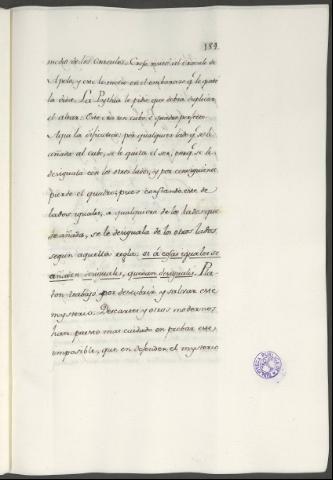 184
mecha de los Oraculos. Creso
de
Apolo, y este le metio en el embarazo q.e le
la vida. La Pythia le pide que debia duplicar
el altar: Este era un cubo, ó quadro perfecto.
Aqui la dificultad: por qualquiera lado q.e se le
añada al cubo, se le quita el ser, porq.e se le
desiguala con los otros lados, y por consiguiente
pierde el quadro; pues constando este de
lados iguales, a qualquiera de los lados que
se añada, se le desiguala de los otros lados,
segun aquella regla: si á cosas iguales se
añaden desiguales, quedan desiguales. Pla-
ton trabajó por descubrir, y salvar este
mysterio. Descartes y otros modernos
han puesto mas cuidado en probar este
imposible, que en defender el mysterio